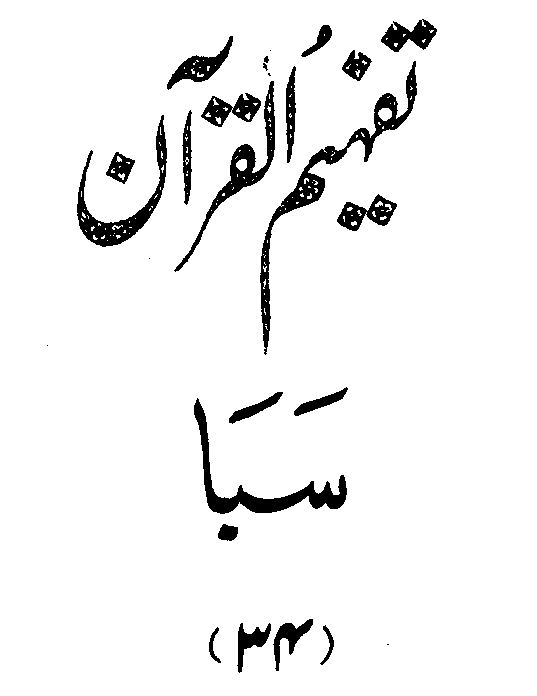 تفہیمُ القرآن
سَبَا
(۳۴)